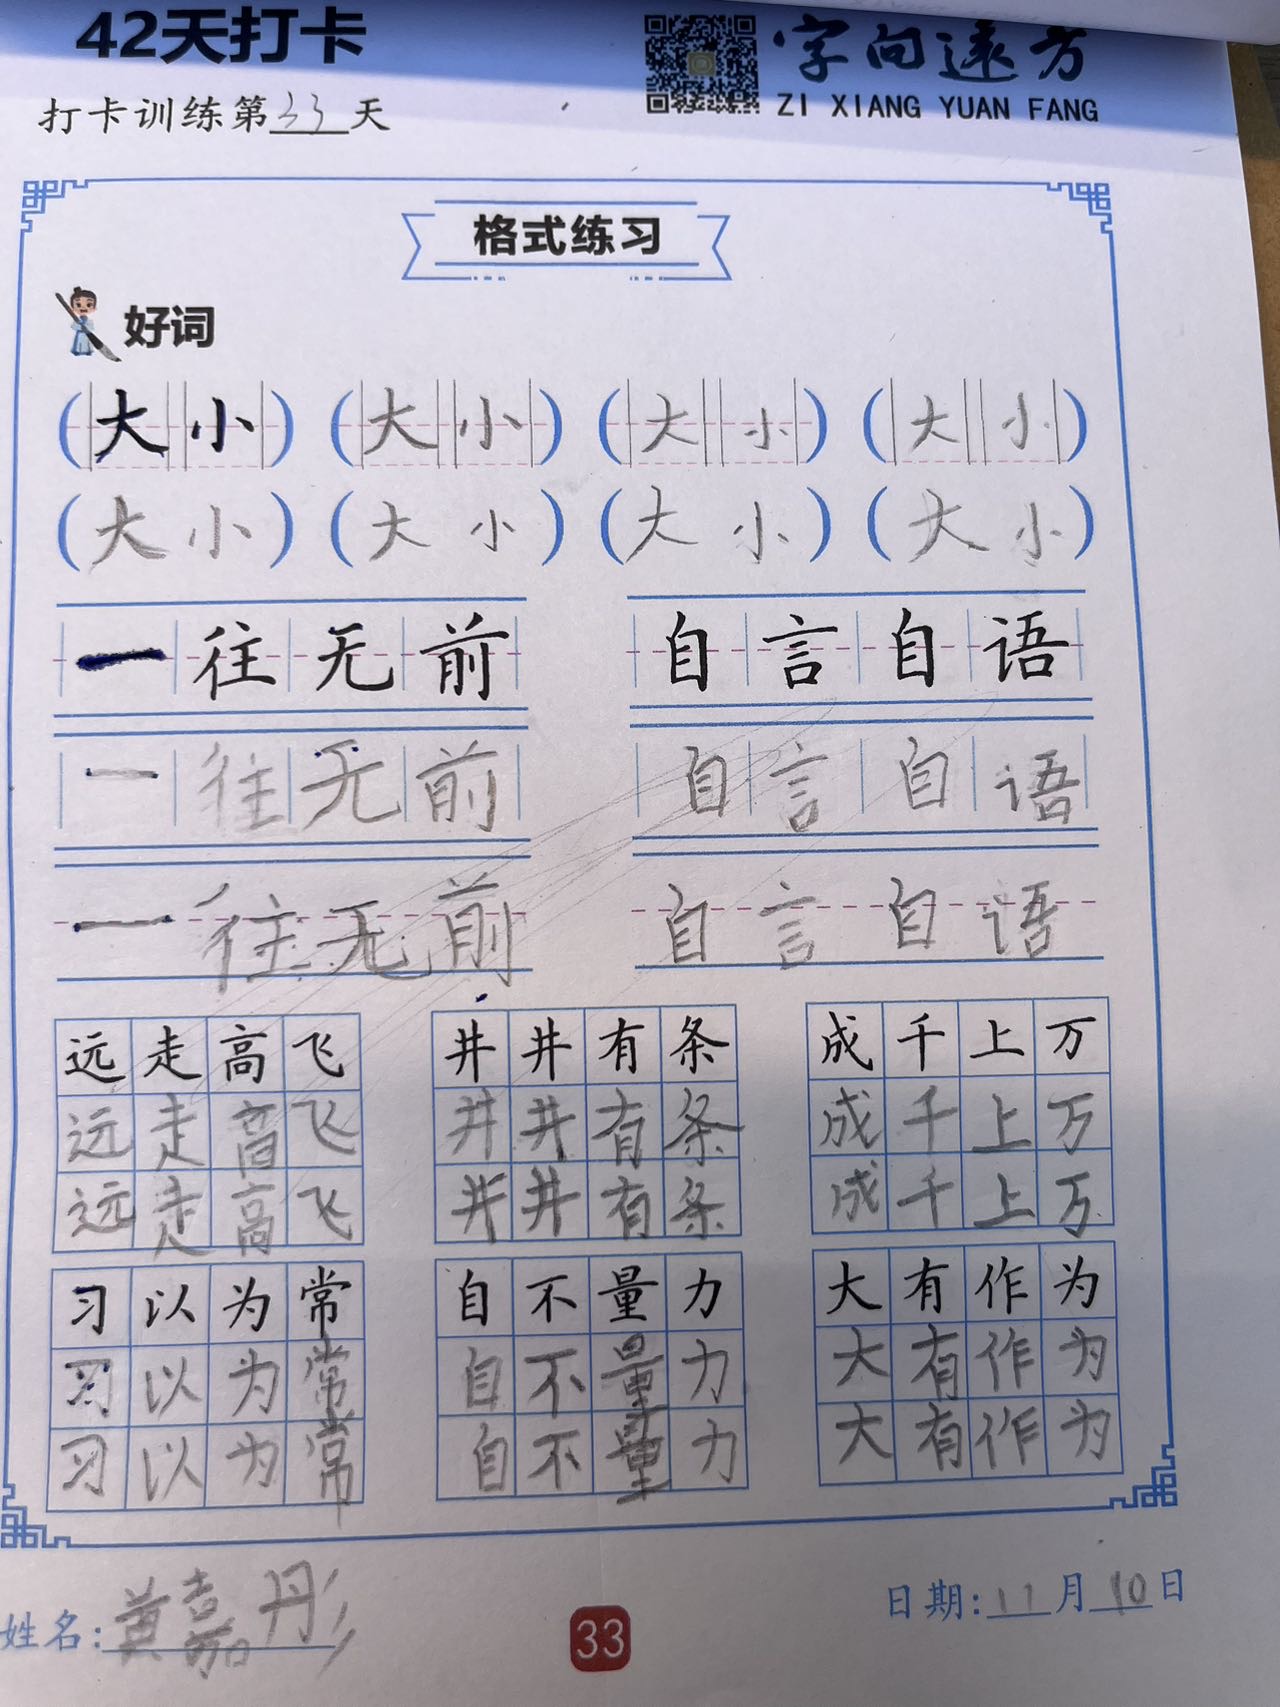 42天打卡
字向远方
ZI XIANG YUAN FANG
打卡训练第33天
格式练习
好词
(大小) (大小) (大小) (大小)
(大小) (大小) (大小) (大小)
一往无前 自言自语
一往无前 自言自语
一往无前 自言自语
远走高飞 井井有条 成千上万
远走高飞 井井有条 成千上万
远走高飞 井井有条 成千上万
习以为常 自不量力 大有作为
习以为常 自不量力 大有作为
习以为常 自不量力 大有作为
姓名:黄嘉彤
日期:11月10日
33